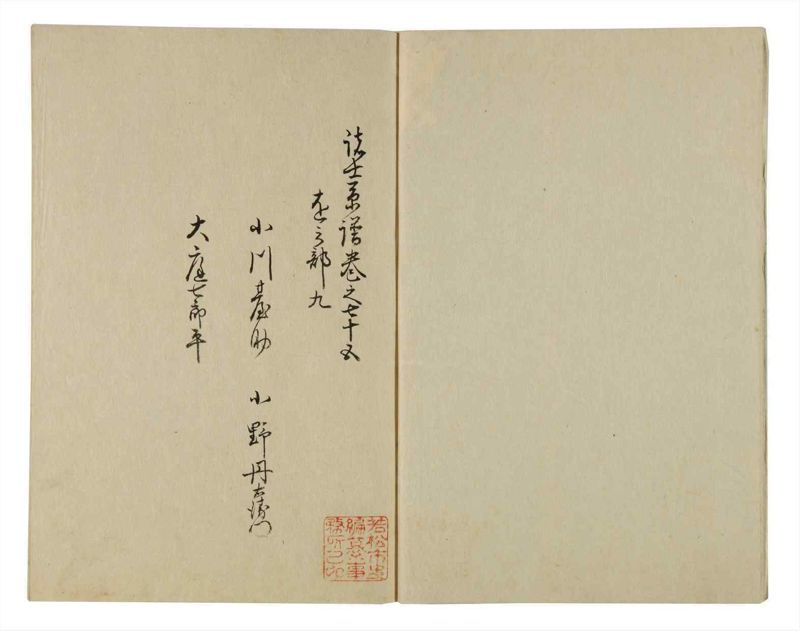 諸士系譜巻之七十五
遠之部九
小川甚助 小野丹左衛門
大庭七郎平
若松市史
編纂事
務所之印